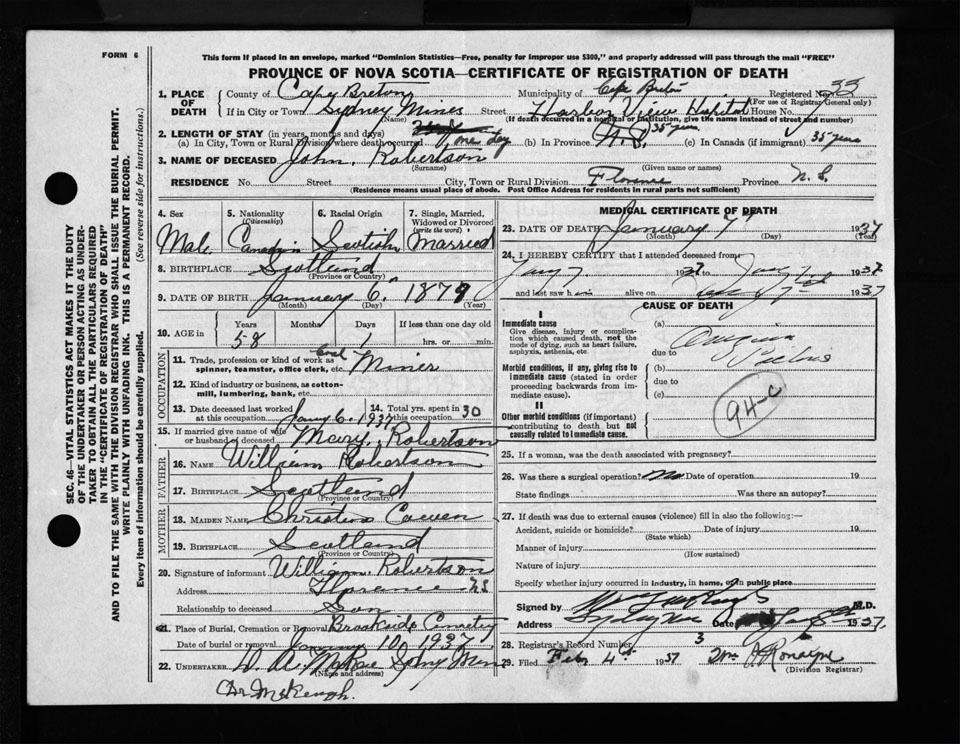 FORM 6
This form if placed in an envelope, marked "Dominion Statistics—Free, penalty for improper use $300," and properly addressed will pass through the mail "FREE"
PROVINCE OF NOVA SCOTIA—CERTIFICATE OF REGISTRATION OF DEATH
1. PLACE OF DEATH
County of Cape Breton Municipality of Cape Breton Registered No. 33
(For use of Registrar General only)
If in City or Town Sydney Mines Street Harbor View Hospital House No.
(Name) (If death occurred in a hospital or institution, give the name instead of street and number)
2. LENGTH OF STAY (in years, months and days)
(a) In City, Town or Rural Division where death occurred one day (b) In Province N.S. 35 years (c) In Canada (if immigrant) 35 years
3. NAME OF DECEASED John Robertson
(Surname) (Given name or names)
RESIDENCE No. Street City, Town or Rural Division Florence Province N.S.
(Residence means usual place of abode. Post Office Address for residents in rural parts not sufficient)
4. Sex Male
5. Nationality (Citizenship) Canadian
6. Racial Origin Scotish
7. Single, Married, Widowed or Divorced (write the word) Married
8. BIRTHPLACE Scotland
(Province or Country)
9. DATE OF BIRTH January 6 1879
(Month) (Day) (Year)
10. AGE in Years 58 Months Days 1 If less than one day old hrs. or min.
OCCUPATION
11. Trade, profession or kind of work as spinner, teamster, office clerk, etc. Coal Miner
12. Kind of industry or business, as cotton-mill, lumbering, bank, etc.
13. Date deceased last worked at this occupation Jany 6. 1937
14. Total yrs. spent in this occupation 30
15. If married give name of wife or husband of deceased Mary Robertson
FATHER
16. NAME William Robertson
17. BIRTHPLACE Scotland
(Province or Country)
MOTHER
18. MAIDEN NAME Christina Cowen
19. BIRTHPLACE Scotland
(Province or Country)
20. Signature of informant William Robertson
Address Florence NS
Relationship to deceased Son
21. Place of Burial, Cremation or Removal Brookside Cemetery
Date of burial or removal January 10, 1937
22. UNDERTAKER
(Name and address)
Dr McKeough.
MEDICAL CERTIFICATE OF DEATH
23. DATE OF DEATH January 7 1937
(Month) (Day) (Year)
24. I HEREBY CERTIFY that I attended deceased from:
Jany 7 1937 to Jan 7 1937
and last saw him alive on 7 1937
CAUSE OF DEATH
I
Immediate cause
Give disease, injury or complication which caused death, not the mode of dying, such as heart failure, asphyxia, asthenia, etc.
(a) Angina Pectoris
due to
Morbid conditions, if any, giving rise to immediate cause (stated in order proceeding backwards from immediate cause).
(b)
due to
(c)
94-c
II
Other morbid conditions (if important) contributing to death but not causally related to immediate cause.
25. If a woman, was the death associated with pregnancy?
26. Was there a surgical operation? No Date of operation 19
State findings Was there an autopsy?
27. If death was due to external causes (violence) fill in also the following:—
Accident, suicide or homicide? Date of injury 19
(State which)
Manner of injury
(How sustained)
Nature of injury
Specify whether injury occurred in industry, in home, or in public place
Signed by M.D.
Address Sydney Mines Date Jan 1937
28. Registrar's Record Number 3
29. Filed Feb 4th 1937
(Division Registrar)
SEC. 46—VITAL STATISTICS ACT MAKES IT THE DUTY OF THE UNDERTAKER OR PERSON ACTING AS UNDERTAKER TO OBTAIN ALL THE PARTICULARS REQUIRED IN THE "CERTIFICATE OF REGISTRATION OF DEATH" AND TO FILE THE SAME WITH THE DIVISION REGISTRAR WHO SHALL ISSUE THE BURIAL PERMIT.
WRITE PLAINLY WITH UNFADING INK. THIS IS A PERMANENT RECORD.
Every item of information should be carefully supplied. (See reverse side for instructions.)